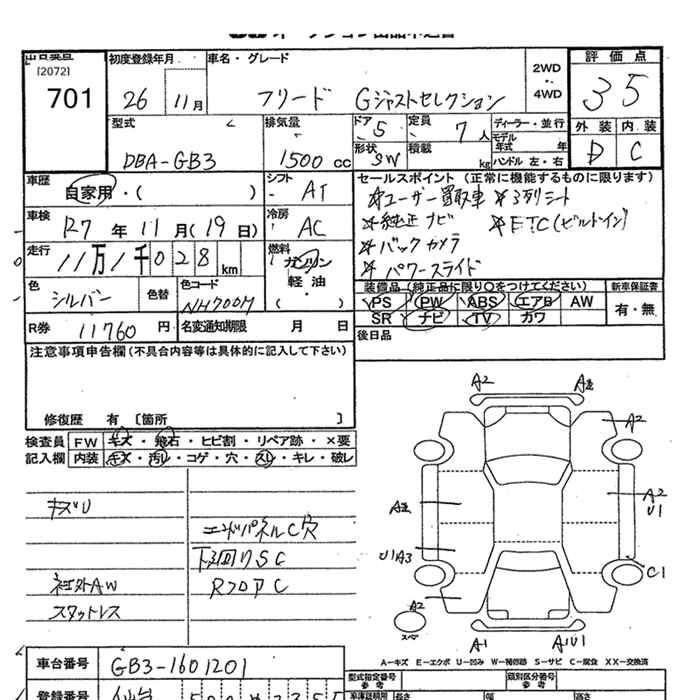 オークション出品申込書
出品番号
[2072]
701
初度登録年月
26 11月
車名・グレード
フリード Gジャストセレクション
2WD
・
4WD
評価点
3 5
型式
DBA-GB3
排気量
1500 cc
ドア 5
定員 7 人
形状 SW
積載 kg
ディーラー・並行
モデル年式 年
ハンドル 左・右
外装 内装
D C
車歴
自家用・( )
シフト
AT
車検
R7 年 11 月(19 日)
冷房
AC
走行
11万1千028 km
燃料
ガソリン
軽油
・
色
シルバー
色替
色コード
NH700M
R券 11760 円
名変通知期限 月 日
セールスポイント (正常に機能するものに限ります)
☆ユーザー買取車 ☆3列シート
☆純正ナビ ☆ETC(ビルトイン)
☆バックカメラ
☆パワースライド
装備品 (純正品に限り○をつけてください)
PS PW ABS エアB AW
SR ナビ TV カワ
新車保証書
有・無
後日品
注意事項申告欄(不具合内容等は具体的に記入して下さい)
修復歴 有 〔箇所 〕
検査員 FW キズ・飛石・ヒビ割・リペア跡・×要
記入欄 内装 キズ・汚レ・コゲ・穴・スレ・キレ・破レ
キズU
社外AW
スタットレス
エンドパネルC穴
下回りSC
RフロアC
A2
A2
A2
A2
U1
U1A3
C1
A2
スペア
A1
A1U1
A-キズ E-エクボ U-凹み W-補修跡 S-サビ C-腐食 XX-交換済
車台番号 GB3-1601201
登録番号 仙台
型式指定番号
参考
類別区分番号
参考
車庫証明用
長さ
幅
高さ